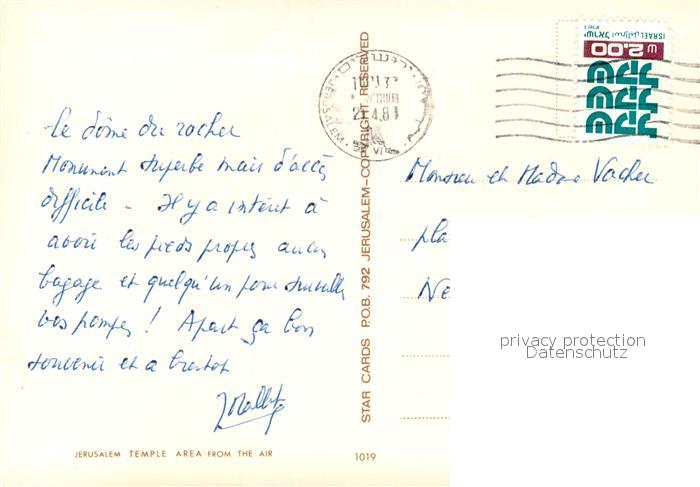 Le dôme du rocher
Monument superbe mais d'accès
difficile - Il y a intérêt à
avoir les pieds propres aucun
bagage et quelqu'un pour surveiller
vos pompes ! Apart ça bon
souvenir et a bientot
JERUSALEM TEMPLE AREA FROM THE AIR
1019
STAR CARDS P.O.B. 792 JERUSALEM-COPYRIGHT RESERVED
ירושלים
JERUSALEM
ISRAEL اسرائيل ישראל
2.00
שקל
שקל
שקל
Monsieur et Madame Vacher
pla
Ne
privacy protection
Datenschutz